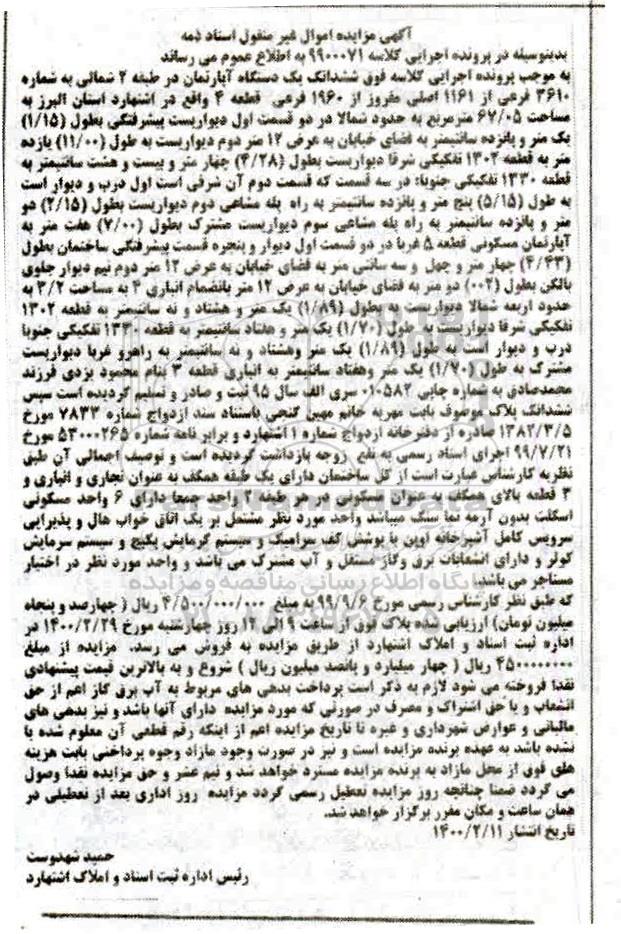 آگهی مزایده اموال غیر منقول اسناد ذمه
بدینوسیله در پرونده اجرایی کلاسه ۹۹۰۰۰۷۱ به اطلاع عموم می رساند
به موجب پرونده اجرایی کلاسه فوق ششدانگ یک دستگاه آپارتمان در طبقه ۲ شمالی به شماره
۳۶۱۰ فرعی از ۱۱۶۱ اصلی مفروز از ۱۹۶۰ فرعی قطعه ۴ واقع در اشتهارد استان البرز به
مساحت ۶۷/۰۵ مترمربع به حدود شمالا در دو قسمت اول دیواریست پیشرفتگی بطول (۱/۱۵)
یک متر و پانزده سانتیمتر به فضای خیابان به عرض ۱۲ متر دوم دیواریست به طول (۱۱/۰۰) یازده
متر به قطعه ۱۳۰۲ تفکیکی شرقا دیواریست بطول (۴/۲۸) چهار متر و بیست و هشت سانتیمتر به
قطعه ۱۳۳۰ تفکیکی جنوبا: در سه قسمت که قسمت دوم آن شرقی است اول درب و دیوار است
به طول (۵/۱۵) پنج متر و پانزده سانتیمتر به راه پله مشاعی دوم دیواریست بطول (۲/۱۵) دو
متر و پانزده سانتیمتر به راه پله مشاعی سوم دیواریست مشترک بطول (۷/۰۰) هفت متر به
آپارتمان مسکونی قطعه ۵ غربا در دو قسمت اول دیوار و پنجره قسمت پیشرفتگی ساختمان بطول
(۴/۴۳) چهار متر و چهل و سه سانتی متر به فضای خیابان به عرض ۱۲ متر دوم نیم دیوار جلوی
بالکن بطول (۰۰۲) دو متر به فضای خیابان به عرض ۱۲ متر بانضمام انباری ۴ به مساحت ۳/۲ به
حدود اربعه شمالا دیواریست به بطول (۱/۸۹) یک متر و هشتاد و نه سانتیمتر به قطعه ۱۳۰۲
تفکیکی شرقا دیواریست به طول (۱/۷۰) یک متر و هفتاد سانتیمتر به قطعه ۱۳۳۰ تفکیکی جنوبا
درب و دیوار است به طول (۱/۸۹) یک متر وهشتاد و نه سانتیمتر به راهرو غربا دیواریست
مشترک به طول (۱/۷۰) یک متر وهفتاد سانتیمتر به انباری قطعه ۳ بنام محمود یزدی فرزند
محمدصادق به شماره چاپی ۰۱۰۵۸۲ سری الف سال ۹۵ ثبت و صادر و تسلیم گردیده است سپس
ششدانگ پلاک موصوف بابت مهریه خانم مهین گنجی باستناد سند ازدواج شماره ۷۸۳۳ مورخ
۱۳۸۲/۳/۵ صادره از دفترخانه ازدواج شماره ۱ اشتهارد و برابر نامه شماره ۵۳۰۰۰۲۶۵ مورخ
۹۹/۷/۲۱ اجرای اسناد رسمی به نفع زوجه بازداشت گردیده است و توصیف اجمالی آن طبق
نظریه کارشناس عبارت است از کل ساختمان دارای یک طبقه همکف به عنوان تجاری و انباری و
۳ قطعه بالای همکف به عنوان مسکونی در هر طبقه ۲ واحد جمعا دارای ۶ واحد مسکونی
اسکلت بدون آرمه نما سنگ میباشد واحد مورد نظر مشتمل بر یک اتاق خواب هال و پذیرایی
سرویس کامل آشپزخانه اوپن با پوشش کف سرامیک و سیستم گرمایش پکیج و سیستم سرمایش
کولر و دارای انشعابات برق وگاز مستقل و آب مشترک می باشد و واحد مورد نظر در اختیار
مستاجر می باشد.
که طبق نظر کارشناس رسمی مورخ ۹۹/۹/۶ به مبلغ ۴/۵۰۰/۰۰۰/۰۰۰ ریال ( چهارصد و پنجاه
میلیون تومان) ارزیابی شده پلاک فوق از ساعت ۹ الی ۱۲ روز چهارشنبه مورخ ۱۴۰۰/۲/۲۹ در
اداره ثبت اسناد و املاک اشتهارد از طریق مزایده به فروش می رسد. مزایده از مبلغ
۴۵۰۰۰۰۰۰۰۰ ریال ( چهار میلیارد و پانصد میلیون ریال ) شروع و به بالاترین قیمت پیشنهادی
نقدا فروخته می شود لازم به ذکر است پرداخت بدهی های مربوط به آب برق گاز اعم از حق
انشعاب و یا حق اشتراک و مصرف در صورتی که مورد مزایده دارای آنها باشد و نیز بدهی های
مالیاتی و عوارض شهرداری و غیره تا تاریخ مزایده اعم از اینکه رقم قطعی آن معلوم شده یا
نشده باشد به عهده برنده مزایده است و نیز در صورت وجود مازاد وجوه پرداختی بابت هزینه
های فوق از محل مازاد به برنده مزایده مسترد خواهد شد و نیم عشر و حق مزایده نقدا وصول
می گردد ضمنا چنانچه روز مزایده تعطیل رسمی گردد مزایده روز اداری بعد از تعطیلی در
همان ساعت و مکان مقرر برگزار خواهد شد.
تاریخ انتشار ۱۴۰۰/۲/۱۱
حمید شهدوست
رئیس اداره ثبت اسناد و املاک اشتهارد